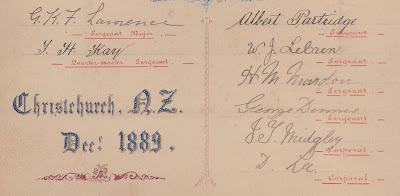 G. K. F. Lawrence
Sergeant Major
T. H. Kay
Quarter-master Sergeant
Christchurch, N.Z.
Dec! 1889.
Albert Partridge
Sergeant
W. J. Lebren
Sergeant
H. M. Mardon
Sergeant
George Dennis
Sergeant
J. T. Midgley
Corporal
D. Lee
Corporal